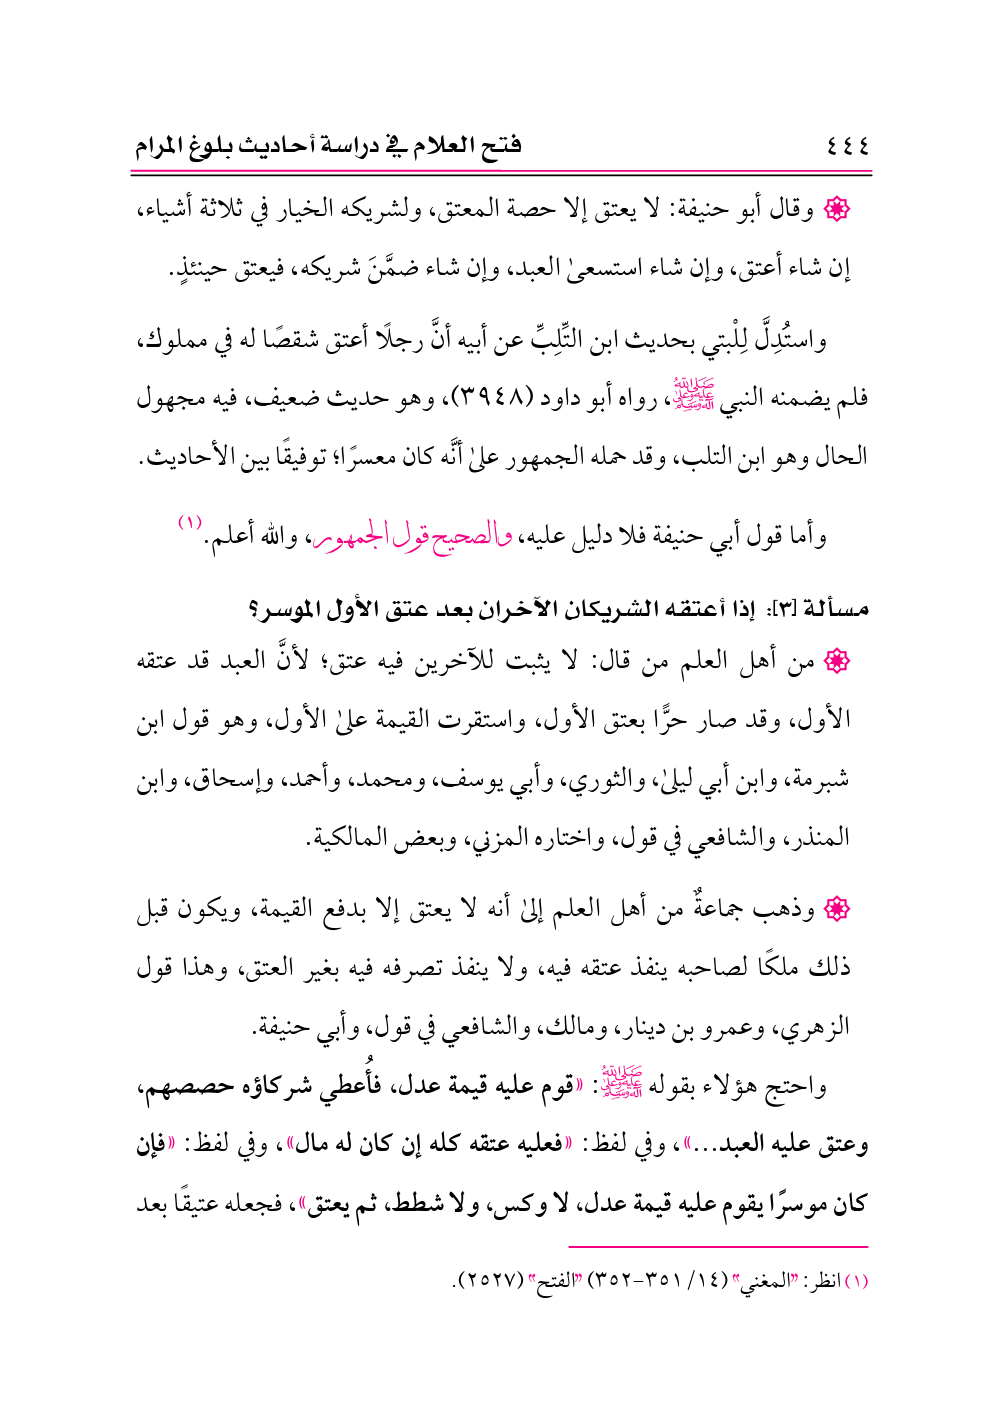 ٤٤٤ فتح العلام في دراسة أحاديث بلوغ المرام
وقال أبو حنيفة: لا يعتق إلا حصة المعتق، ولشريكه الخيار في ثلاثة أشياء،
إن شاء أعتق، وإن شاء استسعىٰ العبد، وإن شاء ضمَّنَ شريكه، فيعتق حينئذٍ.
واستُدِلَّ لِلْبتي بحديث ابن التِّلِبِّ عن أبيه أنَّ رجلًا أعتق شقصًا له في مملوك،
فلم يضمنه النبي ﷺ، رواه أبو داود (٣٩٤٨)، وهو حديث ضعيف، فيه مجهول
الحال وهو ابن التلب، وقد حمله الجمهور علىٰ أنَّه كان معسرًا؛ توفيقًا بين الأحاديث.
وأما قول أبي حنيفة فلا دليل عليه، والصحيح قول الجمهور، والله أعلم.(١)
مسألة [٣]: إذا أعتقه الشريكان الآخران بعد عتق الأول الموسر؟
من أهل العلم من قال: لا يثبت للآخرين فيه عتق؛ لأنَّ العبد قد عتقه
الأول، وقد صار حرًّا بعتق الأول، واستقرت القيمة علىٰ الأول، وهو قول ابن
شبرمة، وابن أبي ليلىٰ، والثوري، وأبي يوسف، ومحمد، وأحمد، وإسحاق، وابن
المنذر، والشافعي في قول، واختاره المزني، وبعض المالكية.
وذهب جماعةٌ من أهل العلم إلىٰ أنه لا يعتق إلا بدفع القيمة، ويكون قبل
ذلك ملكًا لصاحبه ينفذ عتقه فيه، ولا ينفذ تصرفه فيه بغير العتق، وهذا قول
الزهري، وعمرو بن دينار، ومالك، والشافعي في قول، وأبي حنيفة.
واحتج هؤلاء بقوله ﷺ: «قوم عليه قيمة عدل، فأُعطي شركاؤه حصصهم،
وعتق عليه العبد...»، وفي لفظ: «فعليه عتقه كله إن كان له مال»، وفي لفظ: «فإن
كان موسرًا يقوم عليه قيمة عدل، لا وكس، ولا شطط، ثم يعتق»، فجعله عتيقًا بعد
(١) انظر: "المغني" (١٤/ ٣٥١-٣٥٢) "الفتح" (٢٥٢٧).